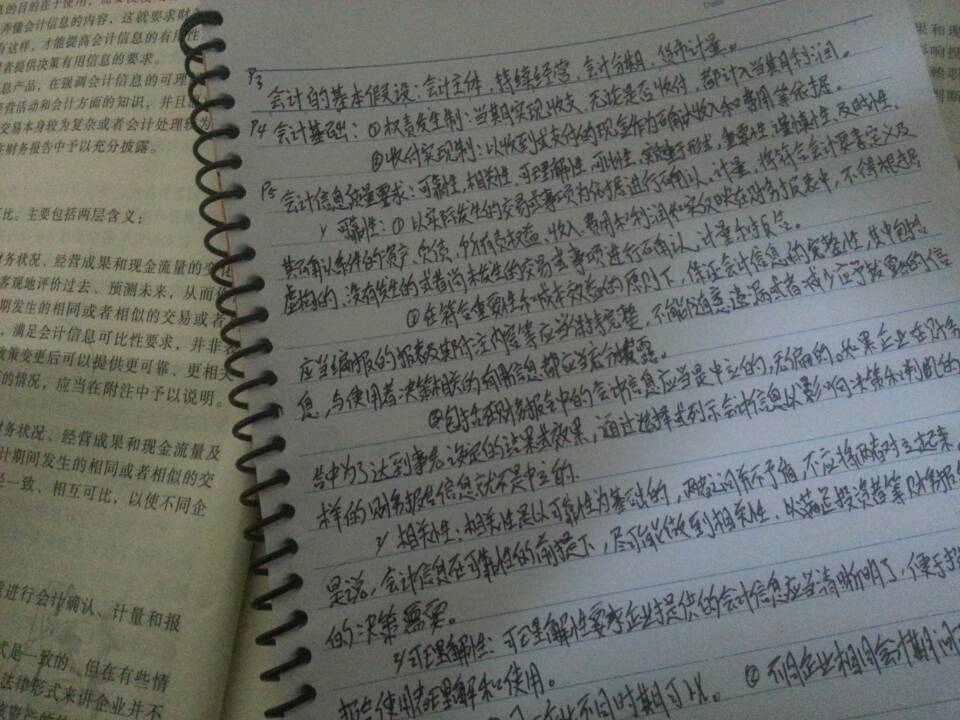 的目的在于使用,
弄懂会计信息的内容，这就要求财
有这样，才能提高会计信息的有用性
者提供决策有用信息的要求。
息产品，在强调会计信息的可理
营活动和会计方面的知识，并且
交易本身较为复杂或者会计处理较为
在财务报告中予以充分披露。
可比。主要包括两层含义：
财务状况、经营成果和现金流量的变
客观地评价过去、预测未来，从而做
期发生的相同或者相似的交易或者
，满足会计信息可比性要求，并非表
政策变更后可以提供更可靠、更相关
的情况，应当在附注中予以说明。
财务状况、经营成果和现金流量及
计期间发生的相同或者相似的交
径一致、相互可比，以使不同企
进行会计确认、计量和报
式是一致的。但在有些情
法律形式来讲企业并不
Date
P3 会计的基本假设：会计主体，持续经营，会计分期，货币计量。
P4 会计基础：①权责发生制：当期实现收支，无论是否收付，都计入当期利润。
②收付实现制：以收到或支付的现金作为确认收入和费用等依据。
P5 会计信息质量要求：可靠性，相关性，可理解性，可比性，实质重于形式，重要性，谨慎性，及时性。
1/ 可靠性：①以实际发生的交易或事项为依据进行确认、计量，将符合会计要素定义及
其确认条件的资产、负债、所有者权益、收入、费用和利润如实反映在财务报表中，不得根据
虚构的、没有发生的或者尚未发生的交易或事项进行确认、计量和报告。
②在符合重要性和成本效益的原则下，保证会计信息的完整性，其中包括
应当编报的报表及其附注内容等应当保持完整，不能随意遗漏或者减少应予披露的信
息，与使用者决策相关的有用信息都应当充分披露。
③包括在财务报告中的会计信息应当是中立的，无偏的。如果企业在财务
告中为了达到事先设定的结果或效果，通过选择或列示会计信息以影响决策和判断的
样的财务报告信息就不是中立的。
2/ 相关性：相关性是以可靠性为基础的，两者之间并不矛盾，不应将两者对立起来。
是说，会计信息在可靠性的前提下，尽可能做到相关性，以满足投资者等财务报告
的决策需要。
3/ 可理解性：可理解性要求企业提供的会计信息应当清晰明了，便于投
报告使用者理解和使用。
不同时期可比。 ②不同企业相同会计期间